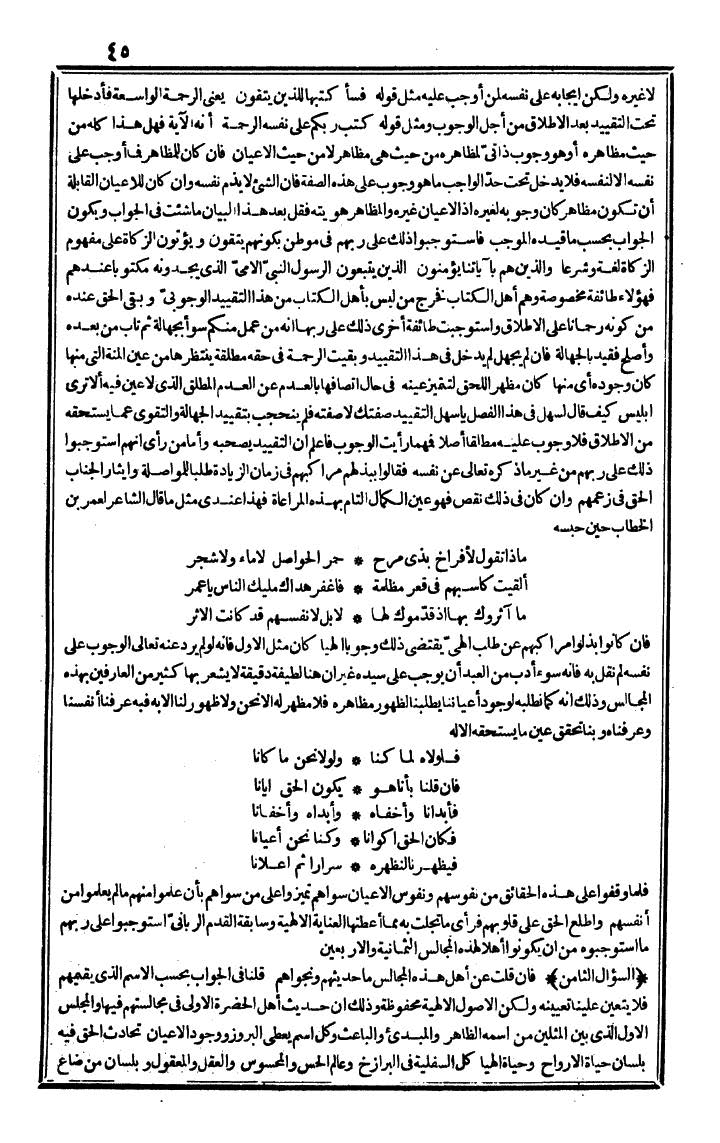 ٤٥
لاغيره ولكن ايجابه على نفسه لمن أوجب عليه مثل قوله فسأ كتبها للذين يتقون يعنى الرحمة الواسعة فأدخلها
تحت التقييد بعد الاطلاق من أجل الوجوب ومثل قوله كتب ربكم على نفسه الرحمة أنه الآية فهل هذا كله من
حيث مظاهره أو هو وجوب ذاتى لمظاهره من حيث هى مظاهر لا من حيث الاعيان فان كان للمظاهر فما أوجب على
نفسه الا لنفسه فلا يدخل تحت حدّ الواجب ما هو وجوب على هذه الصفة فان الشئ لا يذم نفسه وان كان للاعيان القابلة
أن تكون مظاهر كان وجوبه لغيره اذ الاعيان غيره والمظاهر هويته فقل بعد هذا البيان ما شئت فى الجواب ويكون
الجواب بحسب ما قيده الموجب فاستوجبوا ذلك على ربهم فى موطن بكونهم يتقون ويؤتون الزكاة على مفهوم
الزكاة لغة وشرعا والذين هم بآياتنا يؤمنون الذين يتبعون الرسول النبىّ الامىّ الذى يجدونه مكتوبا عندهم
فهؤلاء طائفة مخصوصة وهم أهل الكتاب فخرج من ليس بأهل الكتاب من هذا التقييد الوجوبىّ وبقى الحق عنده
من كونه رحمانا على الاطلاق واستوجبت طائفة أخرى ذلك على ربها انه من عمل منكم سوأ بجهالة ثم تاب من بعده
وأصلح فقيد بالجهالة فان لم يجهل لم يدخل فى هذا التقييد وبقيت الرحمة فى حقه مطلقة ينتظرها من عين المنة التى منها
كان وجوده أى منها كان مظهر اللحق لتتميز عينه فى حال اتصافها بالعدم عن العدم المطلق الذى لا عين فيه ألا ترى
ابليس كيف قال لسهل فى هذا الفصل يا سهل التقييد صفتك لا صفته فلم ينحجب بتقييد الجهالة والتقوى عما يستحقه
من الاطلاق فلا وجوب عليه مطلقا أصلا فهما رأيت الوجوب فاعلم ان التقييد يصحبه وأما من رأى انهم استوجبوا
ذلك على ربهم من غير ما ذكره تعالى عن نفسه فقالوا بيذلهم مراكبهم فى زمان الزيادة طلبا للمواصلة وايثار الجناب
الحق فى زعمهم وان كان فى ذلك نقص فهو عين الكمال التام بهذه المراعاة فهذا عندى مثل ما قال الشاعر لعمر بن
الخطاب حين حبسه
ماذا تقول لأفراخ بذى مرح * حمر الحواصل لا ماء ولا شجر
ألقيت كاسبهم فى قعر مظلمة * فاغفر هداك مليك الناس يا عمر
ما آثروك بها اذ قدّموك لها * لا بل لانفسهم قد كانت الاثر
فان كانوا بذلوا مراكبهم عن طلب الهىّ يقتضى ذلك وجوبا الهيا كان مثل الاول فانه لو لم يرد عنه تعالى الوجوب على
نفسه لم نقل به فانه سوء أدب من العبد أن يوجب على سيده غير ان هنا لطيفة دقيقة لا يشعر بها كثير من العارفين بهذه
المجالس وذلك انه كما نطلبه لوجود أعياننا يطلبنا لظهور مظاهره فلا مظهر له الا نحن ولا ظهور لنا الا به فبه عرفنا أنفسنا
وعرفناه وبنا تحقق عين ما يستحقه الاله
فلولاه لما كنا * ولولا نحن ما كانا
فان قلنا بأنا هو * يكون الحق ايانا
فأبدانا وأخفاه * وأبداه وأخفانا
فكان الحق اكوانا * وكنا نحن أعيانا
فيظهرنا لنظهره * سرارا ثم اعلانا
فلما وقفوا على هذه الحقائق من نفوسهم ونفوس الاعيان سواهم تميزوا على من سواهم بأن علموا منهم ما لم يعلموا من
أنفسهم واطلع الحق على قلوبهم فرأى ما تجلت به مما أعطتها العناية الالهية وسابقة القدم الربانىّ استوجبوا على ربهم
ما استوجبوه من ان يكونوا أهلا لهذه المجالس الثمانية والاربعين
﴿السؤال الثامن﴾ فان قلت عن أهل هذه المجالس ما حديثهم ونجواهم قلنا فى الجواب بحسب الاسم الذى يقيمهم
فلا يتعين علينا تعيينه ولكن الاصول الالهية محفوظة وذلك ان حديث أهل الحضرة الاولى فى مجالستهم فيها والمجلس
الاول الذى بين المثلين من اسمه الظاهر والمبدئ والباعث وكل اسم يعطى البروز ووجود الاعيان تحادث الحق فيه
بلسان حياة الارواح وحياة الهياكل السفلية فى البرازخ وعالم الحس والمحسوس والعقل والمعقول وبلسان من ضاع